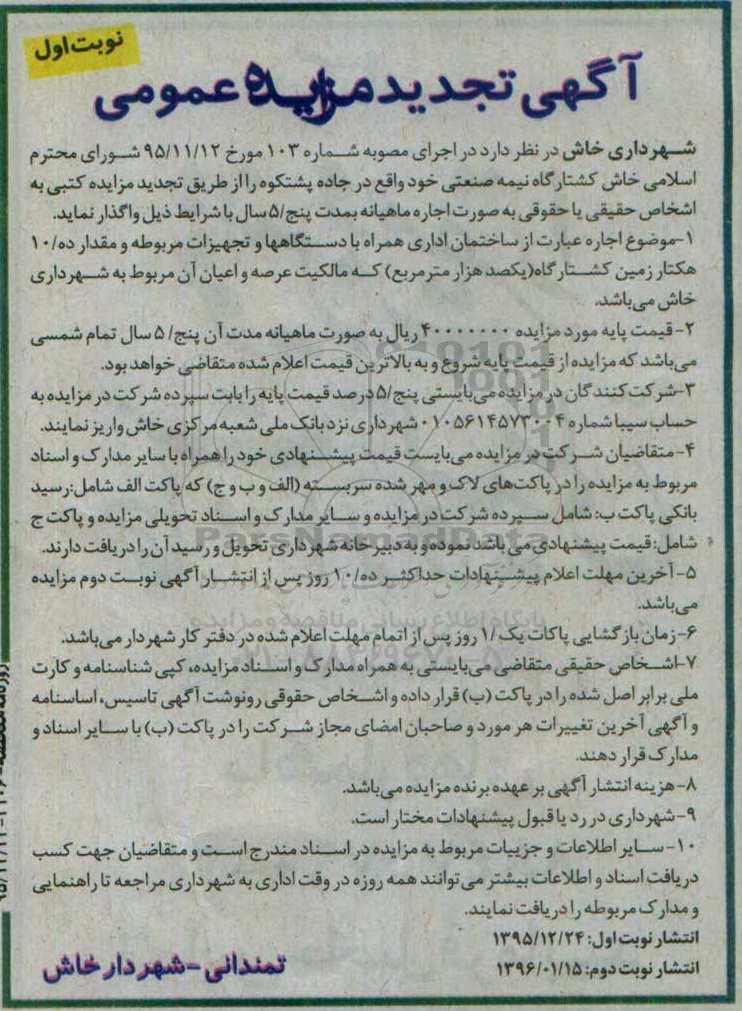 نوبت اول
آگهی تجدید مزایده عمومی
شهرداری خاش در نظر دارد در اجرای مصوبه شماره ۱۰۳ مورخ ۹۵/۱۱/۱۲ شورای محترم
اسلامی خاش کشتارگاه نیمه صنعتی خود واقع در جاده پشتکوه را از طریق تجدید مزایده کتبی به
اشخاص حقیقی یا حقوقی به صورت اجاره ماهیانه بمدت پنج/۵ سال با شرایط ذیل واگذار نماید.
۱-موضوع اجاره عبارت از ساختمان اداری همراه با دستگاهها و تجهیزات مربوطه و مقدار ده/۱۰
هکتار زمین کشتارگاه(یکصد هزار مترمربع) که مالکیت عرصه و اعیان آن مربوط به شهرداری
خاش می‌باشد.
۲- قیمت پایه مورد مزایده ۴۰۰۰۰۰۰۰ ریال به صورت ماهیانه مدت آن پنج/۵ سال تمام شمسی
می‌باشد که مزایده از قیمت پایه شروع و به بالاترین قیمت اعلام شده متقاضی خواهد بود.
۳-شرکت کنندگان در مزایده می‌بایستی پنج/۵ درصد قیمت پایه را بابت سپرده شرکت در مزایده به
حساب سیبا شماره ۰۱۰۵۶۱۴۵۷۳۰۰۴ شهرداری نزد بانک ملی شعبه مرکزی خاش واریز نمایند.
۴- متقاضیان شرکت در مزایده می‌بایست قیمت پیشنهادی خود را همراه با سایر مدارک و اسناد
مربوط به مزایده را در پاکت‌های لاک و مهر شده سربسته (الف و ب و ج) که پاکت الف شامل:رسید
بانکی پاکت ب: شامل سپرده شرکت در مزایده و سایر مدارک و اسناد تحویلی مزایده و پاکت ج
شامل: قیمت پیشنهادی می باشد نموده و به دبیرخانه شهرداری تحویل و رسید آن را دریافت دارند.
۵- آخرین مهلت اعلام پیشنهادات حداکثر ده/۱۰ روز پس از انتشار آگهی نوبت دوم مزایده
می‌باشد.
۶- زمان بازگشایی پاکات یک/۱ روز پس از اتمام مهلت اعلام شده در دفتر کار شهردار می‌باشد.
۷-اشخاص حقیقی متقاضی می‌بایستی به همراه مدارک و اسناد مزایده، کپی شناسنامه و کارت
ملی برابر اصل شده را در پاکت (ب) قرار داده و اشخاص حقوقی رونوشت آگهی تاسیس، اساسنامه
و آگهی آخرین تغییرات هر مورد و صاحبان امضای مجاز شرکت را در پاکت (ب) با سایر اسناد و
مدارک قرار دهند.
۸- هزینه انتشار آگهی بر عهده برنده مزایده می‌باشد.
۹- شهرداری در رد یا قبول پیشنهادات مختار است.
۱۰- سایر اطلاعات و جزییات مربوط به مزایده در اسناد مندرج است و متقاضیان جهت کسب
دریافت اسناد و اطلاعات بیشتر می‌توانند همه روزه در وقت اداری به شهرداری مراجعه تا راهنمایی
و مدارک مربوطه را دریافت نمایند.
انتشار نوبت اول: ۱۳۹۵/۱۲/۲۴
انتشار نوبت دوم: ۱۳۹۶/۰۱/۱۵
تمندانی - شهردار خاش
ParsNamadData
پایگاه اطلاع رسانی مناقصه و مزایده